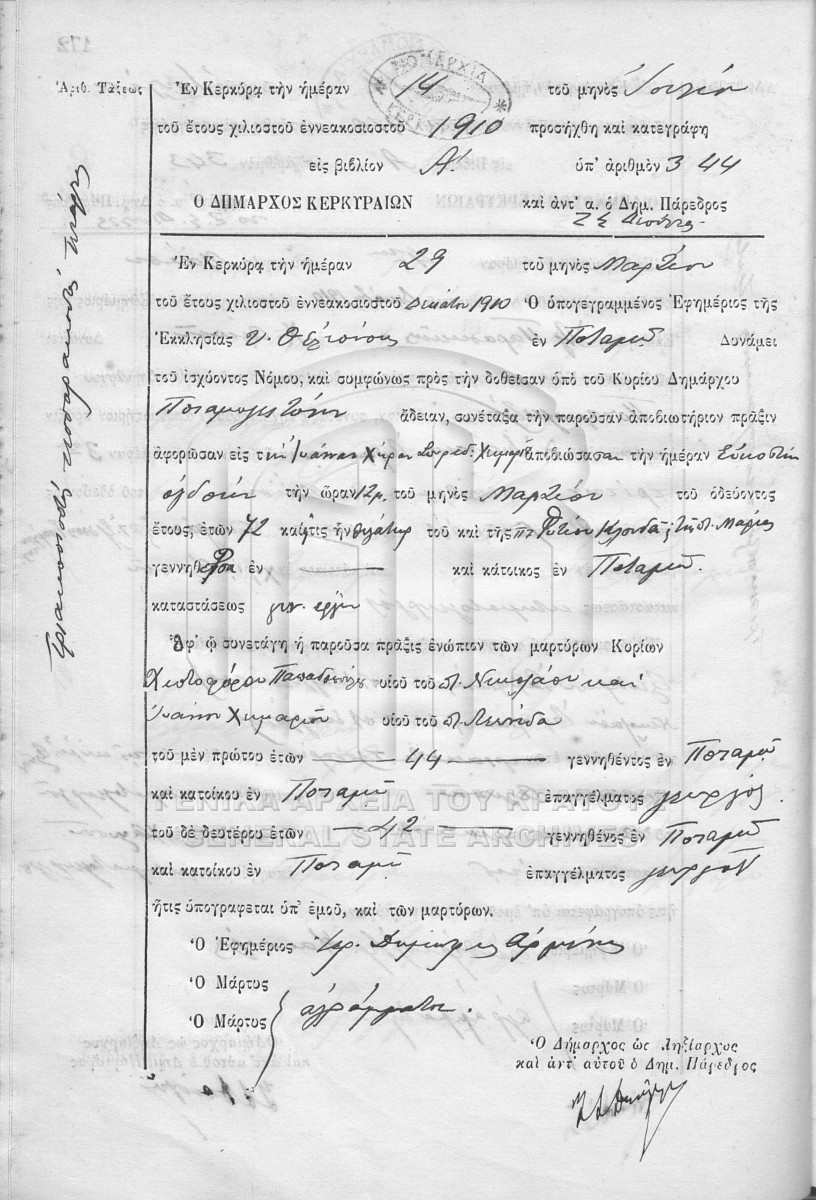 Ἀριθ. Τάξεως
Τριακοσιοστή τεσσαρακοστή τετάρτη
ΝΟΜΑΡΧΙΑ
ΚΕΡΚΥΡΑΣ
Ἐν Κερκύρᾳ τὴν ἡμέραν 14 τοῦ μηνὸς Ἰουνίου
τοῦ ἔτους χιλιοστοῦ ἐννεακοσιοστοῦ 1910 προσήχθη καὶ κατεγράφη
εἰς βιβλίον Α! ὑπ' ἀριθμὸν 344
Ο ΔΗΜΑΡΧΟΣ ΚΕΡΚΥΡΑΙΩΝ καὶ ἀντ' α. ὁ Δημ. Πάρεδρος
Ἐν Κερκύρᾳ τὴν ἡμέραν 29 τοῦ μηνὸς Μαρτίου
τοῦ ἔτους χιλιοστοῦ ἐννεακοσιοστοῦ Δεκάτου 1910 Ὁ ὑπογεγραμμένος Ἐφημέριος τῆς
Ἐκκλησίας ἐν Ποταμῷ Δυνάμει
τοῦ ἰσχύοντος Νόμου, καὶ συμφώνως πρὸς τὴν δοθεῖσαν ὑπὸ τοῦ Κυρίου Δημάρχου
Ποταμογειτόνων ἄδειαν, συνέταξα τὴν παροῦσαν ἀποβιωτήριον πρᾶξιν
ἀφορῶσαν εἰς τὴν Ἰωάνναν Χήραν Σπυρίδ. Χυμαριοῦ ἀποβιώσασαν τὴν ἡμέραν Εἰκοστὴν
ὀγδόην τὴν ὥραν 12 μ. τοῦ μηνὸς Μαρτίου τοῦ ὁδεύοντος
ἔτους, ἐτῶν 72 καὶ ἥτις ἦν θυγάτηρ τοῦ καὶ τῆς Φωτίου καὶ τῆς Μαρίας
γεννηθεῖσα ἐν καὶ κάτοικος ἐν Ποταμῷ.
καταστάσεως
Ἀφ' ᾧ συνετάγη ἡ παροῦσα πρᾶξις ἐνώπιον τῶν μαρτύρων Κυρίων
Χριστοφόρου Παπαδοπούλου υἱοῦ τοῦ Νικολάου καὶ
Ἰωάννου Χυμαριοῦ υἱοῦ τοῦ Λεωνίδα
τοῦ μὲν πρώτου ἐτῶν 44 γεννηθέντος ἐν Ποταμῷ
καὶ κατοίκου ἐν Ποταμῷ ἐπαγγέλματος γεωργός.
ΓΕΝΙΚΑ ΑΡΧΕΙΑ ΤΟΥ ΚΡΑΤΟΥΣ
τοῦ δὲ δευτέρου ἐτῶν 42 γεννηθένος ἐν Ποταμῷ
GENERAL STATE ARCHIVES
καὶ κατοίκου ἐν Ποταμῷ ἐπαγγέλματος γεωργοῦ
ἥτις ὑπογράφεται ὑπ' ἐμοῦ, καὶ τῶν μαρτύρων.
Ὁ Ἐφημέριος Ἱερ. Δημήτριος
Ὁ Μάρτυς
ἀγράμματοι.
Ὁ Μάρτυς
Ὁ Δήμαρχος ὡς Ληξίαρχος
καὶ ἀντ' αὐτοῦ ὁ Δημ. Πάρεδρος